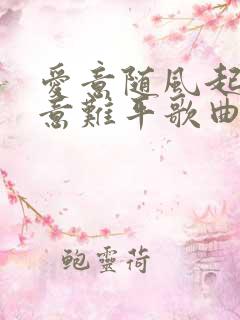 愛意随風起
意難平歌曲
鲍靈荷